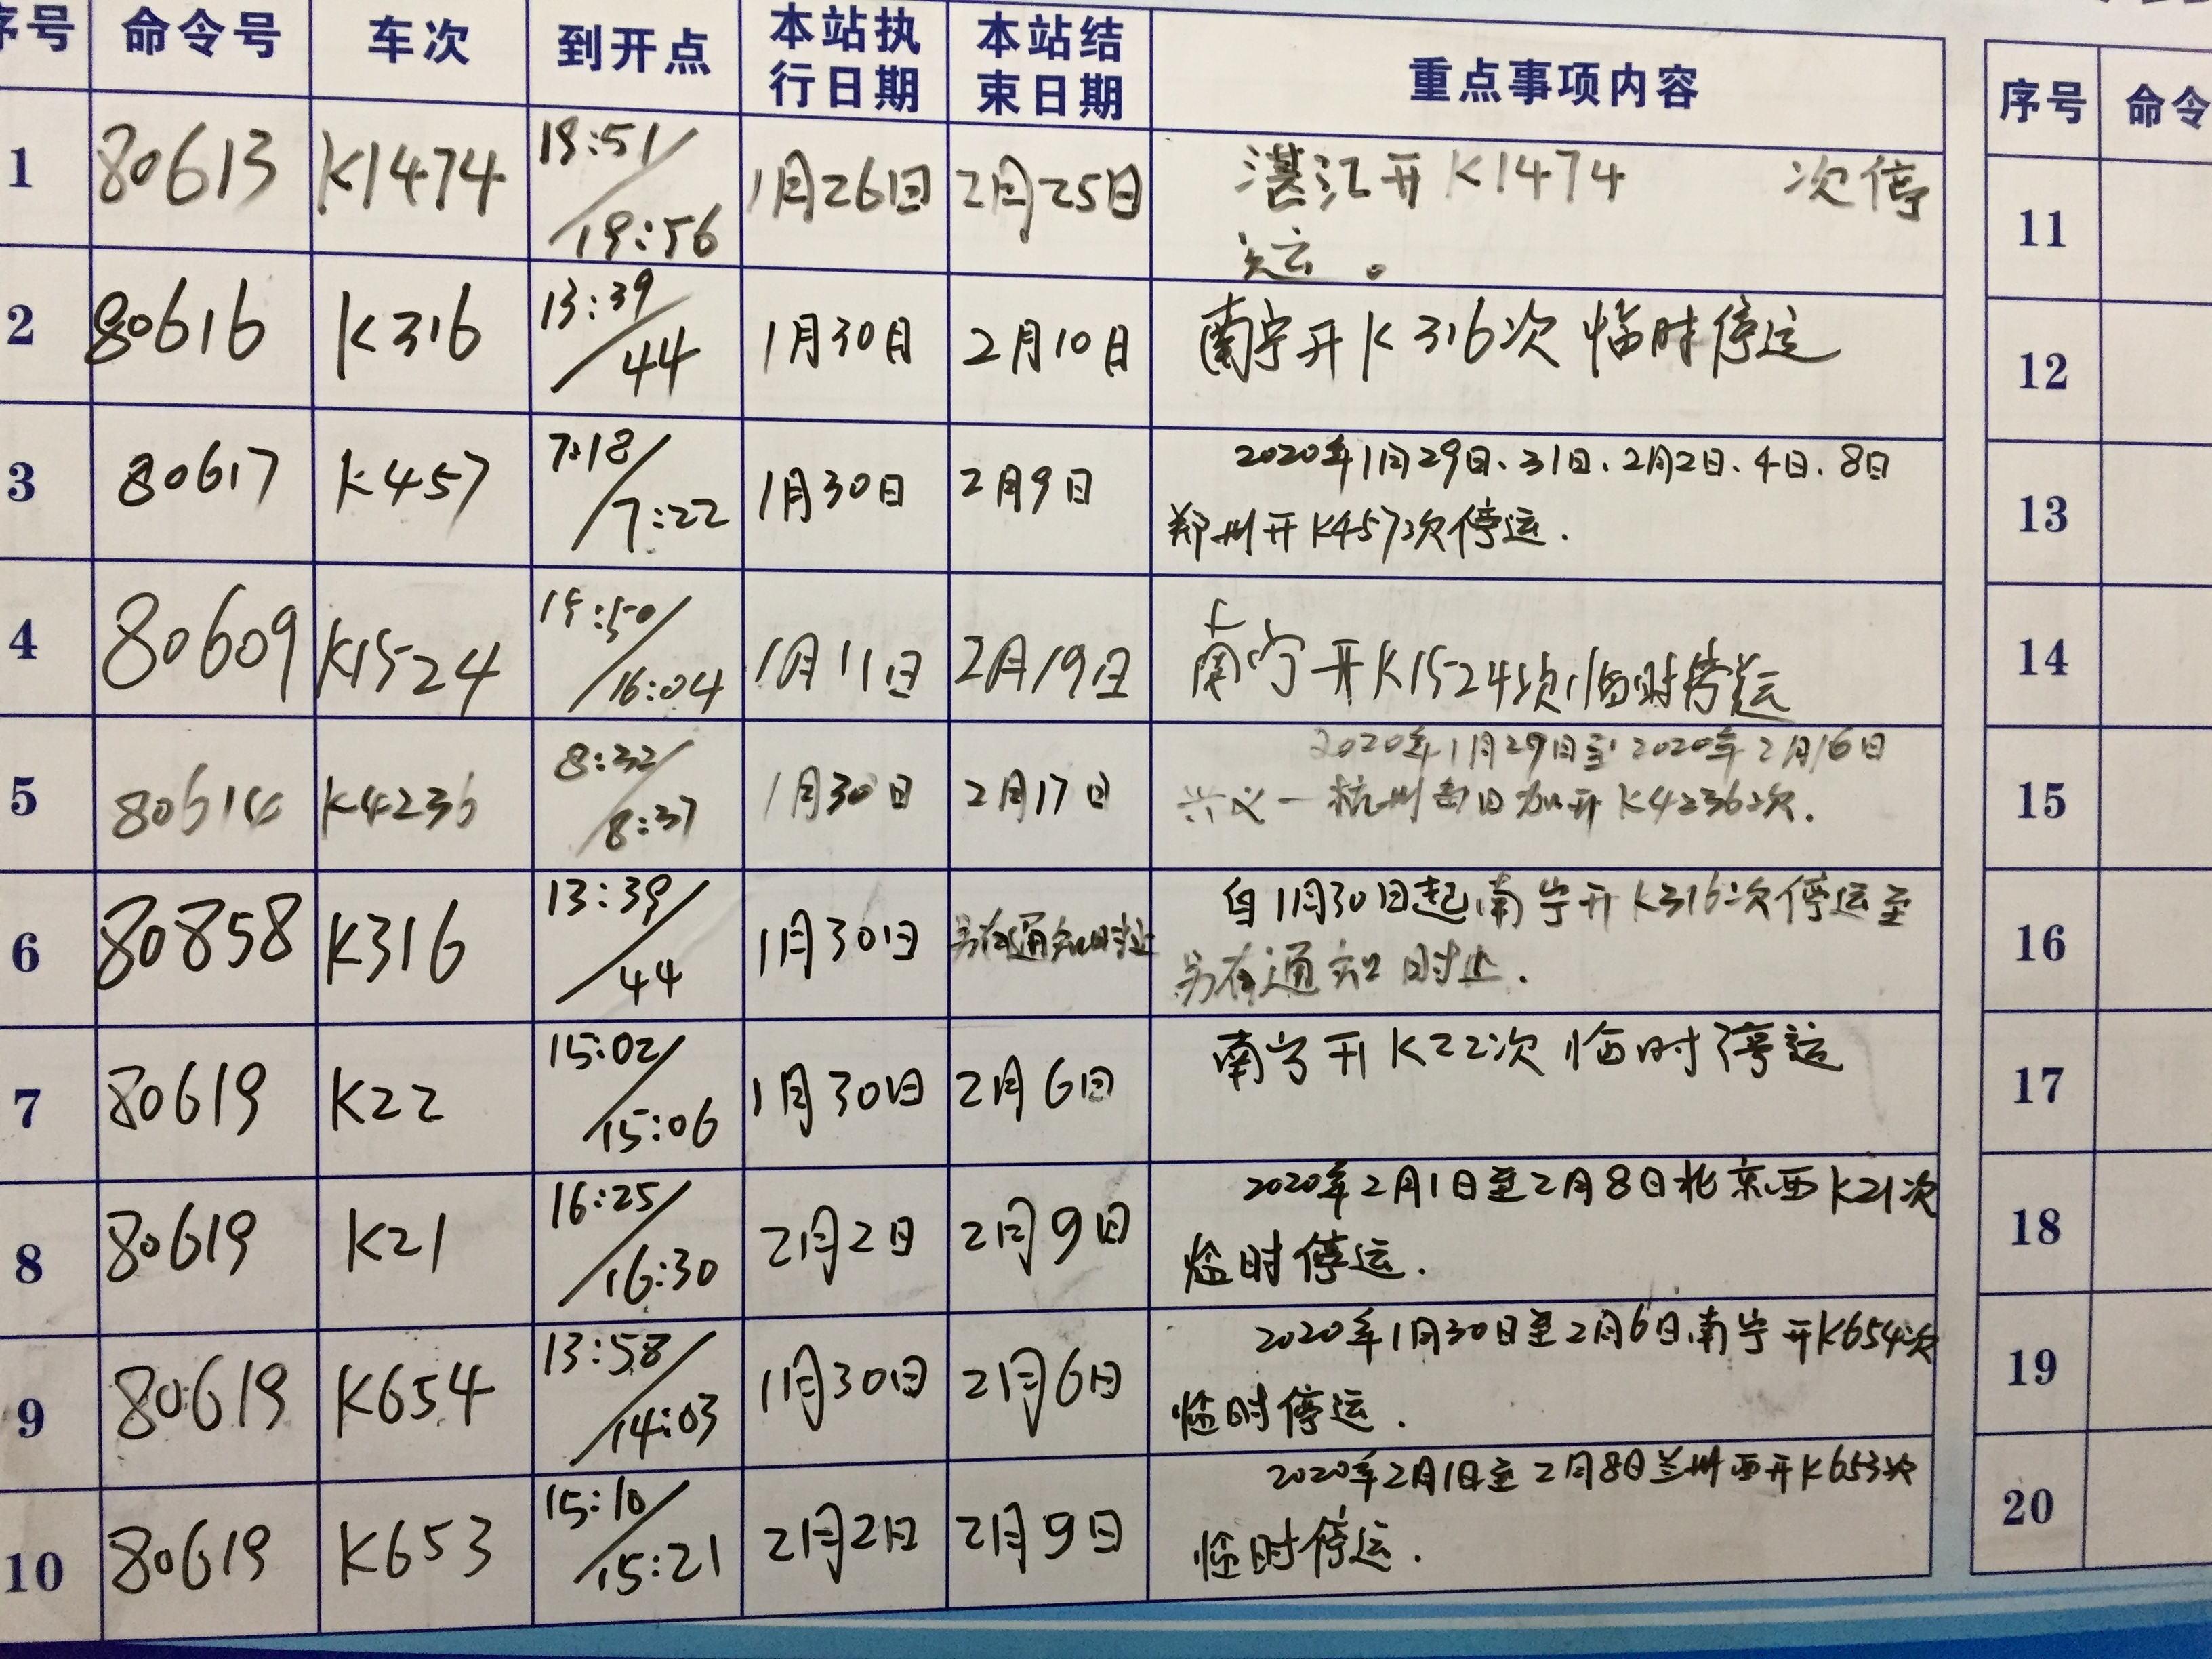 序号 命令号 车次 到开点 本站执行日期 本站结束日期 重点事项内容
1 80613 K1474 19:51/19:56 1月26日 2月25日 湛江开K1474 次停
运。
2 80616 K316 13:39/44 1月30日 2月10日 南宁开K316次临时停运
3 80617 K457 7:18/7:22 1月30日 2月9日 2020年1月29日、31日、2月2日、4日、8日
郑州开K457次停运.
4 80609 K1524 15:50/16:04 1月11日 2月19日 南宁开K1524次临时停运
5 K4236 8:32/8:37 1月30日 2月17日 2020年1月29日至2020年2月16日
兴义一杭州每日加开K4236次.
6 80858 K316 13:39/44 1月30日 另有通知时止 自1月30日起南宁开K316次停运至
另有通知时止.
7 80619 K22 15:02/15:06 1月30日 2月6日 南宁开K22次临时停运
8 80619 K21 16:25/16:30 2月2日 2月9日 2020年2月1日至2月8日北京西K21次
临时停运.
9 80619 K654 13:58/14:03 1月30日 2月6日 2020年1月30日至2月6日南宁开K654次
临时停运.
10 80619 K653 15:10/15:21 2月2日 2月9日 2020年2月1日至2月8日兰州西开K653次
临时停运.
序号 命令
11
12
13
14
15
16
17
18
19
20